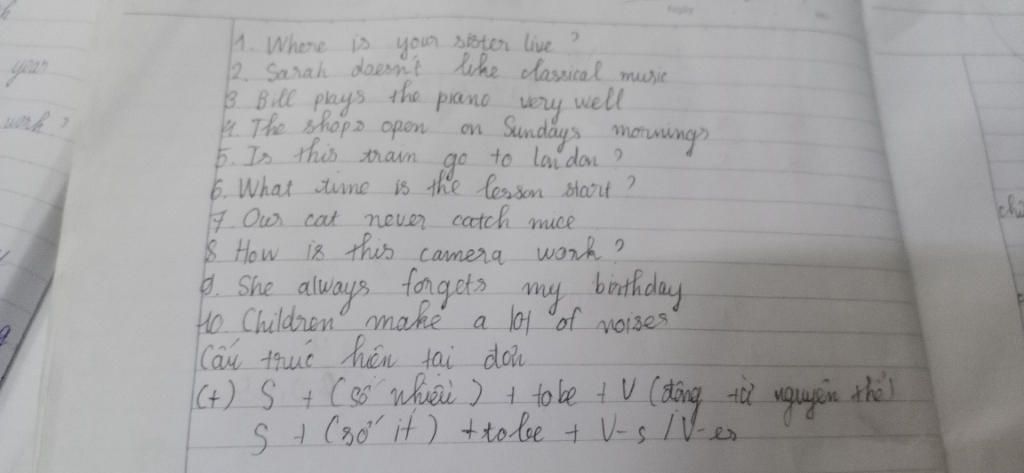 year
work ?
1. Where is your sister live ?
2. Sarah doesn't like classical music
3 Bill plays the piano very well
4. The shops open on Sundays mornings
5. Is this train go to London ?
6. What time is the lesson start ?
7. Our cat never catch mice
8 How is this camera work ?
9. She always forgets my birthday
10. Children make a lot of noises
Cấu trúc hiện tại đơn
(+) S + (số nhiều) + tobe + V (động từ nguyên thể)
S + (số ít) + tobe + V-s / V-es